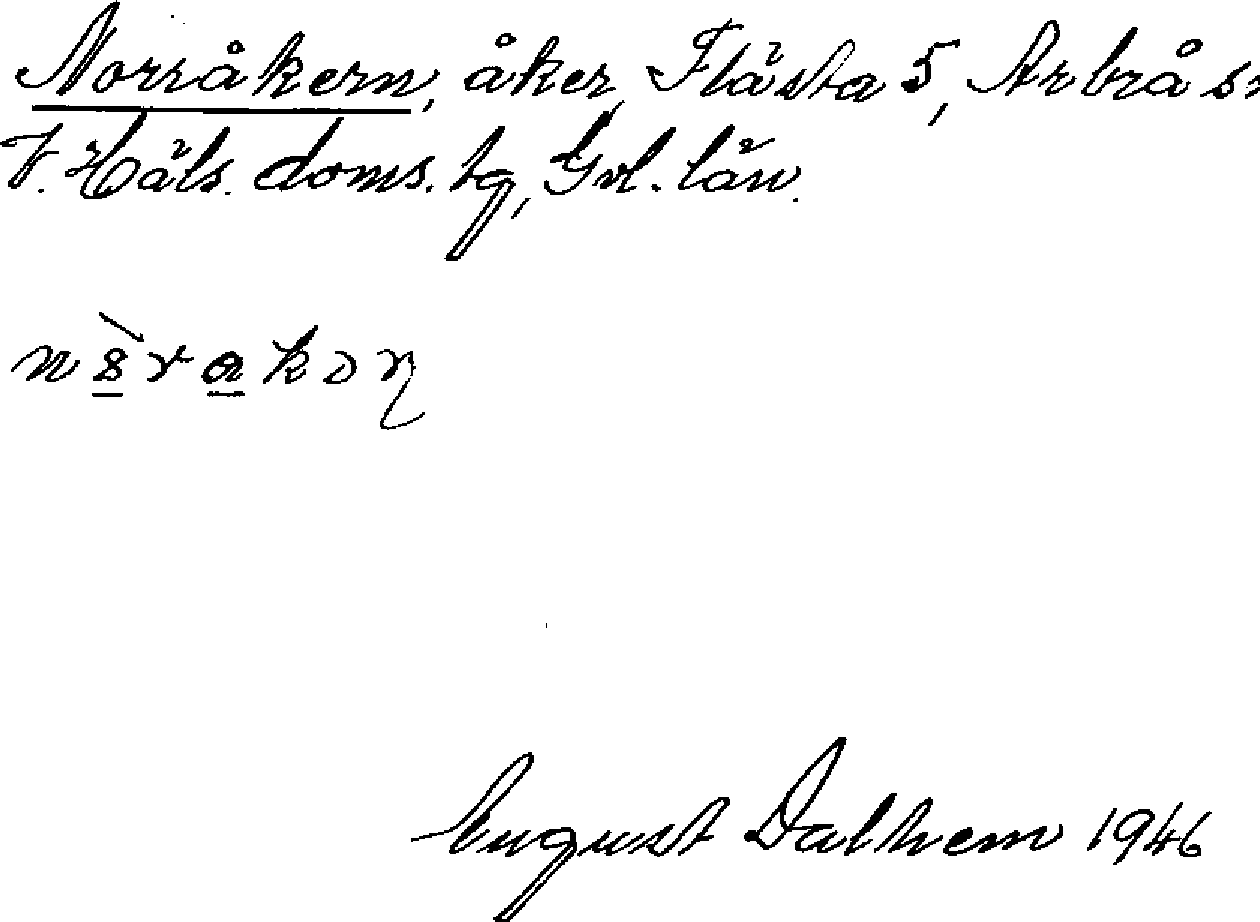 Norråkern, åker, Flästa 5, Arbrå sn
V. Häls. doms. tg, Gvl. län.
August Dalhem 1946